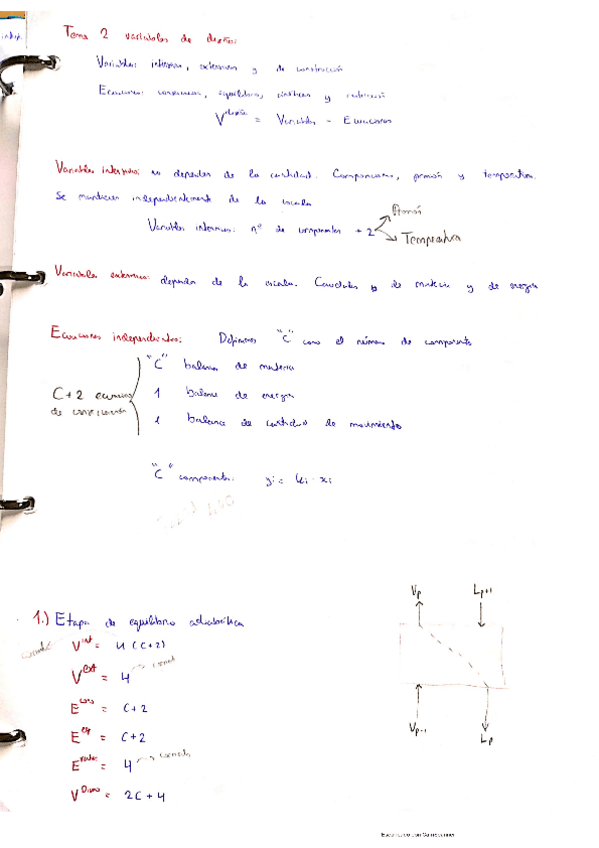 Tema 2 variables de diseño:
Variables: intensivas, extensivas y de construcción
Ecuaciones: conservación, equilibrio, cinéticas y restricción
V^diseño = Variables - Ecuaciones
Variables intensivas: no dependen de la cantidad. Composiciones, presión y temperatura.
Se mantienen independientemente de la escala
Variables intensivas: nº de componentes + 2
Presión
Temperatura
Variables extensivas: dependen de la escala. Caudales de materia y de energía
Ecuaciones independientes: Definimos "C" como el número de componentes
"C" balances de materia
C+2 ecuaciones
de conservación
1 balance de energía
1 balance de cantidad de movimiento
"C" componentes: yi = ki · xi
1.) Etapa de equilibrio adiabática
V^int = 4(C+2)
V^ext = 4
E^cons = C+2
E^eq = C+2
= 4
= 2C+4
Vp
Lp+1
Vp-1
Lp
Escaneado con CamScanner